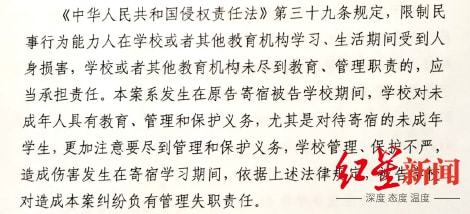 《中华人民共和国侵权责任法》第三十九条规定，限制民
事行为能力人在学校或者其他教育机构学习、生活期间受到人
身损害，学校或者其他教育机构未尽到教育、管理职责的，应
当承担责任。本案系发生在原告寄宿被告学校期间，学校对未
成年人具有教育、管理和保护义务，尤其是对待寄宿的未成年
学生，更加注意要尽到管理和保护义务，学校管理、保护不严，
造成伤害发生在寄宿学习期间，依据上述法律规定，被告学校
对造成本案纠纷负有管理失职责任。
红星新闻
深度 态度 温度